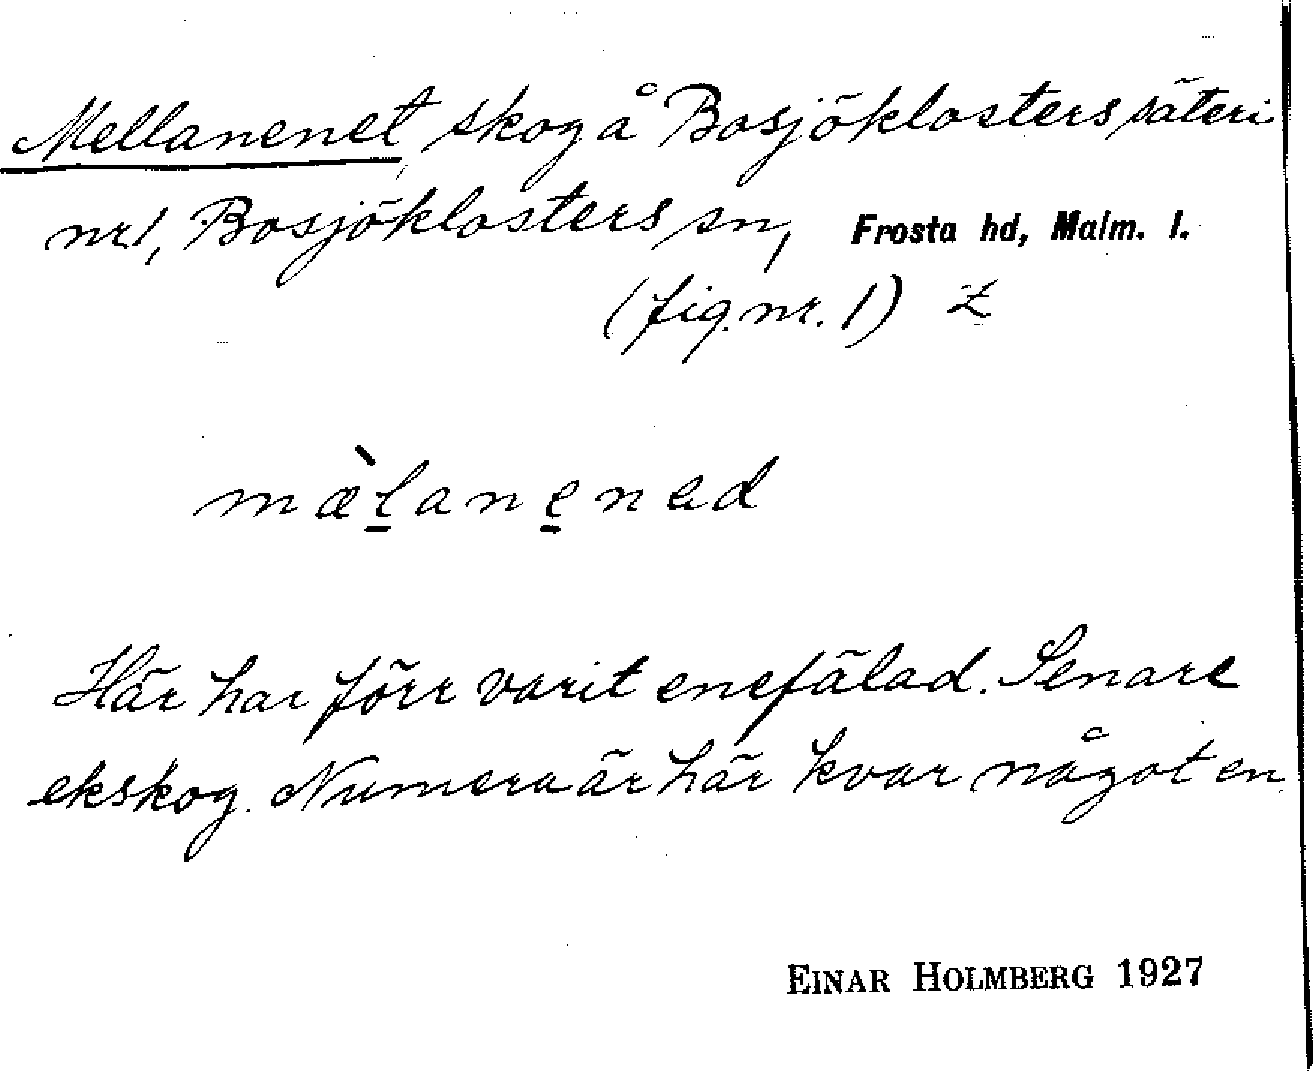 Mellanenet, skog å Bosjöklosters säteri
nr 1, Bosjöklosters sn, Frosta hd, Malm. l.
(fig. nr. 1) Z
mæ̀l̲ane̲nad
Här har förr varit enefälad. Senare
ekskog. Numera är här kvar något en.
EINAR HOLMBERG 1927